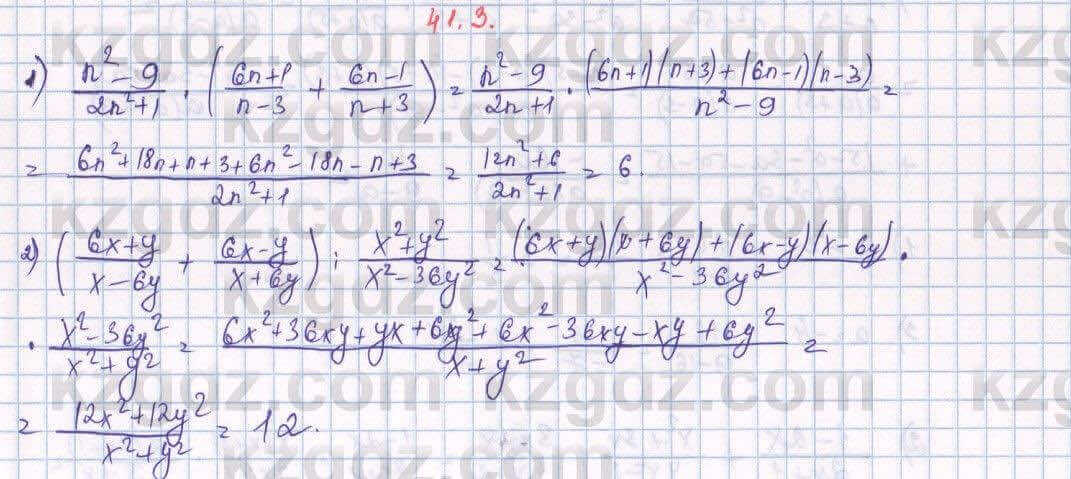 41.3.
1) \frac{n^2-9}{2n^2+1} \cdot \left( \frac{6n+1}{n-3} + \frac{6n-1}{n+3} \right) = \frac{n^2-9}{2n+1} \cdot \frac{(6n+1)(n+3)+(6n-1)(n-3)}{n^2-9} =
= \frac{6n^2+18n+n+3+6n^2-18n-n+3}{2n^2+1} = \frac{12n^2+6}{2n^2+1} = 6.
2) \left( \frac{6x+y}{x-6y} + \frac{6x-y}{x+6y} \right) : \frac{x^2+y^2}{x^2-36y^2} = \frac{(6x+y)(x+6y)+(6x-y)(x-6y)}{x^2-36y^2} \cdot
\cdot \frac{x^2-36y^2}{x^2+y^2} = \frac{6x^2+36xy+yx+6y^2+6x^2-36xy-xy+6y^2}{x+y^2} =
= \frac{12x^2+12y^2}{x^2+y^2} = 12.
kzgdz.com